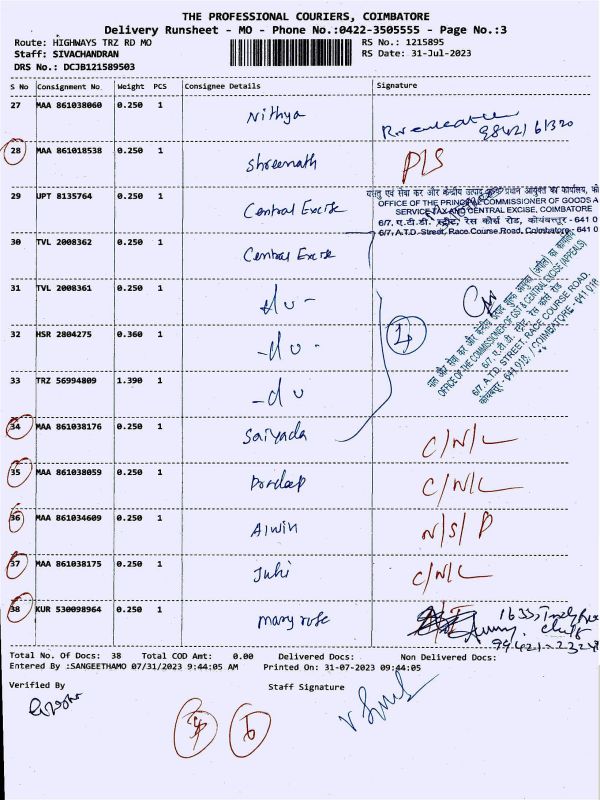 THE PROFESSIONAL COURIERS, COIMBATORE
Delivery Runsheet - MO - Phone No.:0422-3505555 - Page No.:3
Route: HIGHWAYS TRZ RD MO
RS No.: 1215895
Staff: SIVACHANDRAN
RS Date: 31-Jul-2023
DRS No.: DCJB121589503
S No Consignment No Weight PCS Consignee Details Signature
27 MAA 861038060 0.250 1 Nithya
98421 61320
28 MAA 861018538 0.250 1 Shreenath P/S
29 UPT 8135764 0.250 1 Central Excise
OFFICE OF THE PRINCIPAL COMMISSIONER OF GOODS A
SERVICE TAX AND CENTRAL EXCISE, COIMBATORE
6/7, ए.टी.डी. स्ट्रीट, रेस कोर्स रोड, कोयंबत्तूर - 641 0
6/7, A.T.D. Street, Race Course Road, Coimbatore - 641 0
30 TVL 2008362 0.250 1 Central Excise
31 TVL 2008361 0.250 1 - du -
32 HSR 2804275 0.360 1 - du -
33 TRZ 56994809 1.390 1 - du
4
OFFICE OF THE COMMISSIONER OF GST & CENTRAL EXCISE (APPEALS)
6/7, ए.टी.डी. स्ट्रीट, रेस कोर्स रोड
6/7, A.T.D. STREET, RACE COURSE ROAD,
कोयंबत्तूर - 641 018. / COIMBATORE - 641 018
34 MAA 861038176 0.250 1 Saiyada C/N/L
35 MAA 861038059 0.250 1 Pordeep C/N/L
36 MAA 861034609 0.250 1 Alwin N/S/P
37 MAA 861038175 0.250 1 Juhi C/N/L
38 KUR 530098964 0.250 1 mary rose
1633,
99421-23248
Total No. Of Docs: 38 Total COD Amt: 0.00 Delivered Docs: Non Delivered Docs:
Entered By :SANGEETHAMO 07/31/2023 9:44:05 AM Printed On: 31-07-2023 09:44:05
Verified By Staff Signature
6